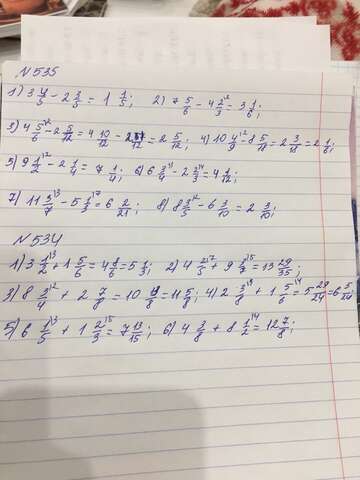 N535
1) 3 4/5 - 2 3/5 = 1 1/5; 2) 7 5/6 - 4 2/3 = 3 1/6;
3) 4 5/6 - 2 5/12 = 4 10/12 - 2 5/12 = 2 5/12; 4) 10 4/9 - 8 5/18 = 2 3/18 = 2 1/6;
5) 9 1/2 - 2 1/4 = 7 1/4; 6) 6 3/4 - 2 2/3 = 4 1/12;
7) 11 5/7 - 5 1/3 = 6 8/21; 8) 8 3/5 - 6 3/10 = 2 3/10;
N534
1) 3 1/2 + 1 5/6 = 4 8/6 = 5 1/3; 2) 4 2/5 + 9 1/7 = 13 29/35;
3) 8 3/4 + 2 7/8 = 10 13/8 = 11 5/8; 4) 2 3/8 + 1 5/6 = 5 29/24 = 6 5/24;
5) 6 1/5 + 1 2/3 = 7 13/15; 6) 4 3/8 + 8 1/2 = 12 7/8;